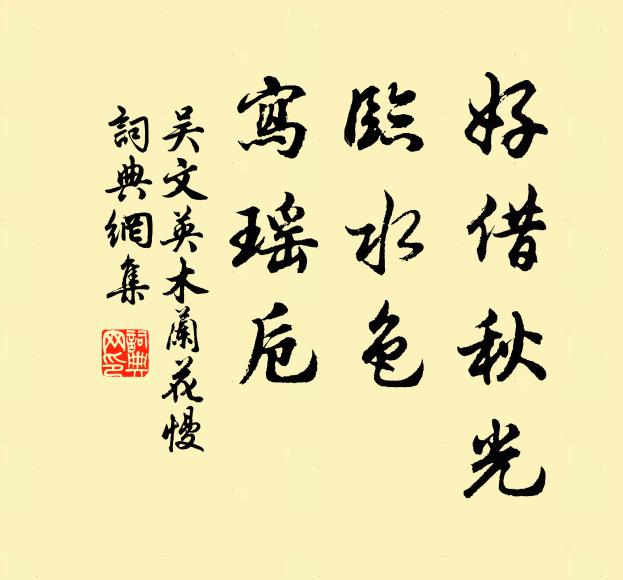 好借秋光
臨水色
寫瑶卮
吴文英木蘭花慢
詞典網集
詞典網印